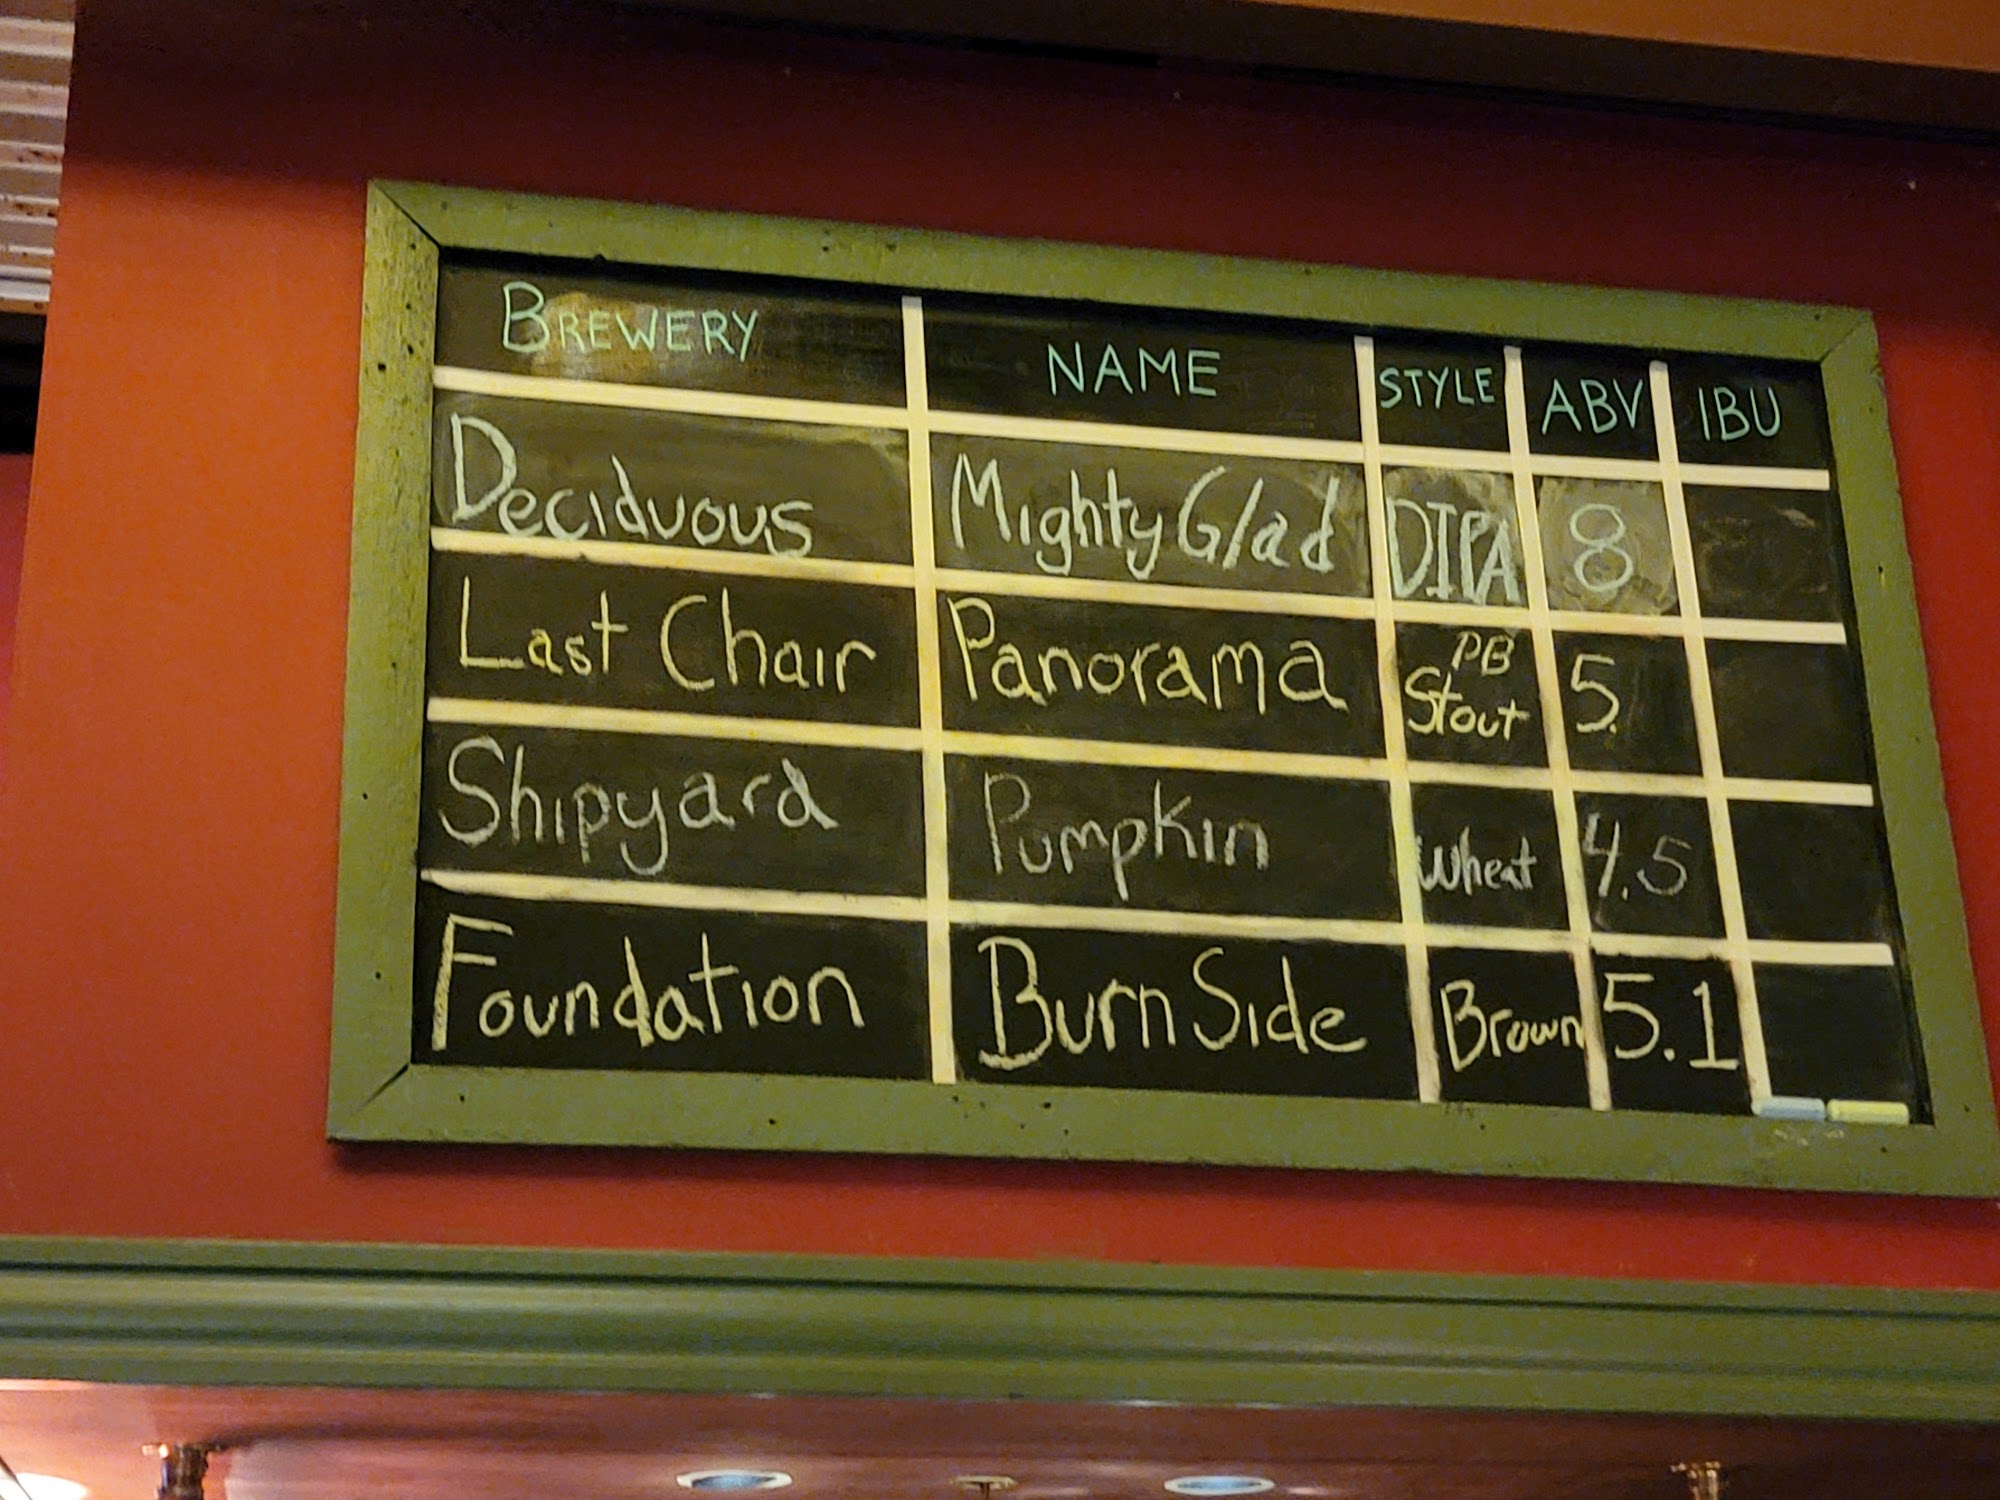 BREWERY NAME STYLE ABV IBU
Deciduous Mighty Glad DIPA 8
Last Chair Panorama PB Stout 5.
Shipyard Pumpkin Wheat 4.5
Foundation Burn Side Brown 5.1